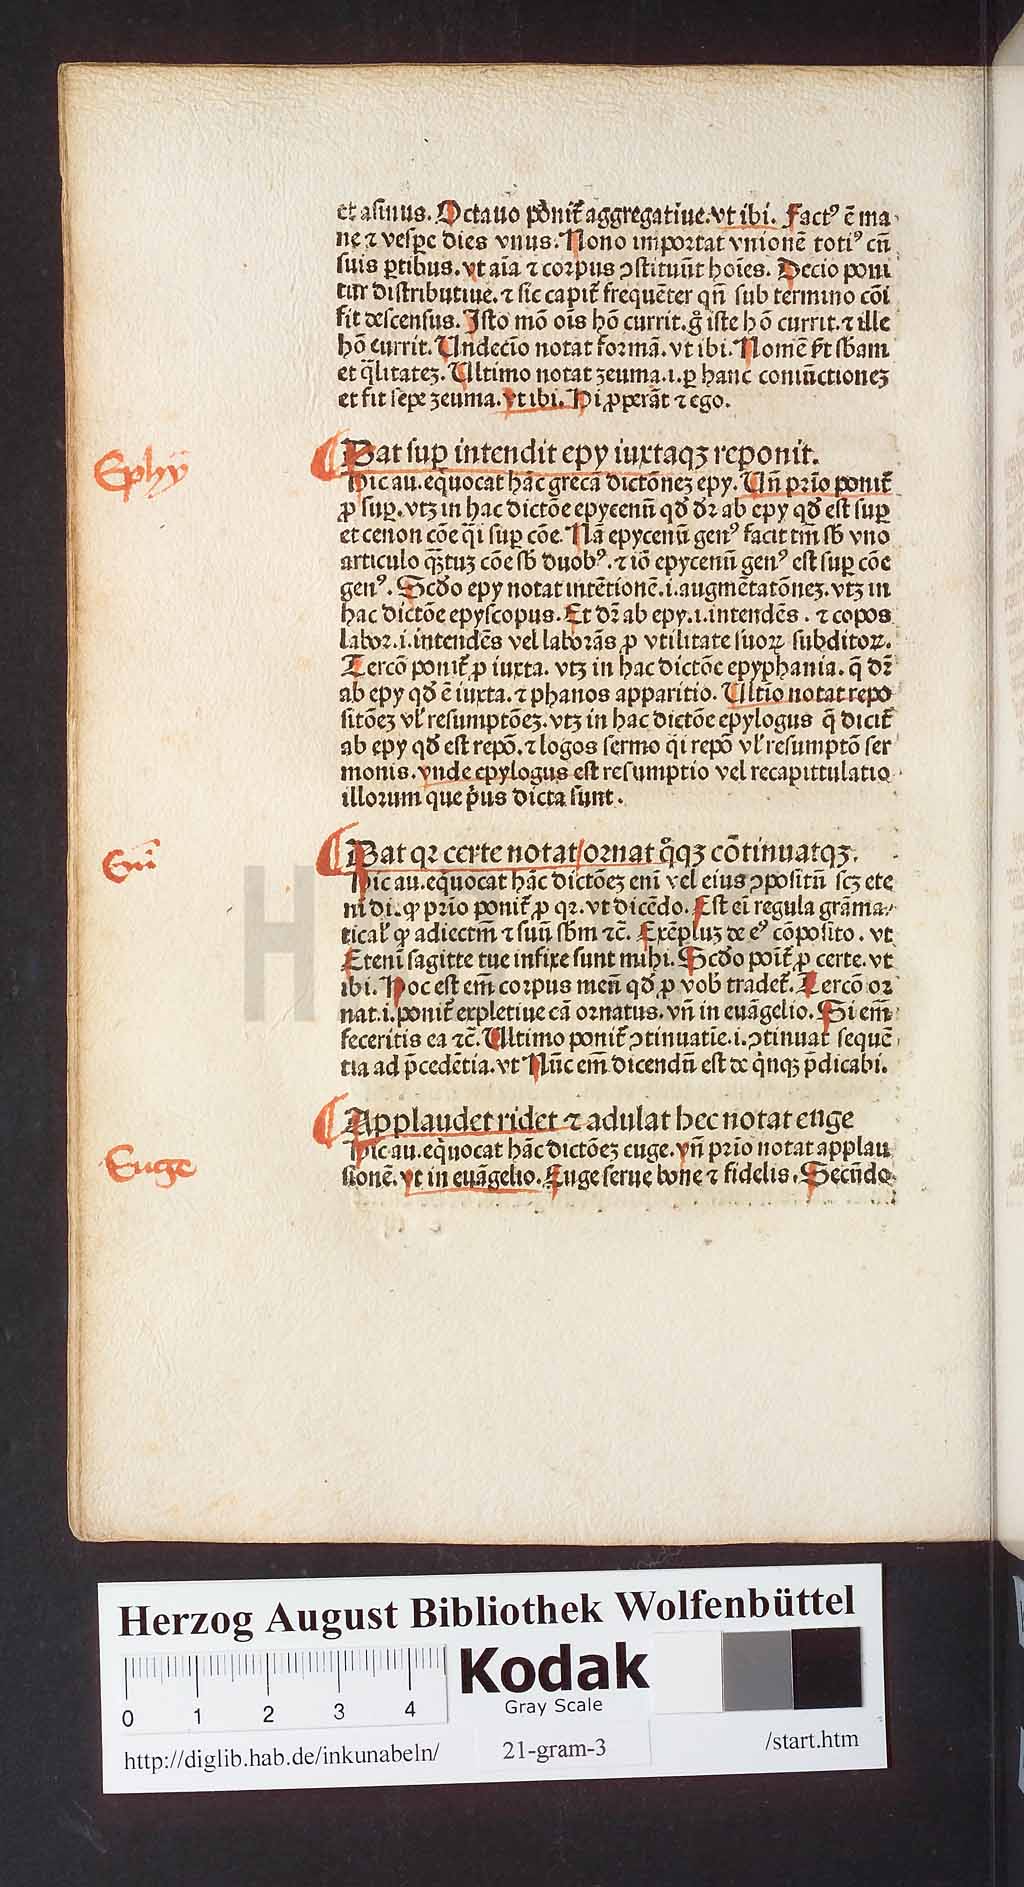 et asinus. Octauo ponit᷑ aggregatiue. vt ibi. Factꝰ ē ma
ne ⁊ vespe dies vnus. Nono importat vnionē totiꝰ cū
suis ꝑtibus. vt aīa ⁊ corpus ↄstituūt hoīes. Decio poni
tur distributiue. ⁊ sic capit᷑ frequēter qn̄ sub termino cōi
fit descensus. Isto mō oīs hō currit. gͦ iste hō currit. ⁊ ille
hō currit. Undecīo notat formā. vt ibi. Nomē ſt sbam
et q̄litatez. Ultimo notat zeuma. i. ꝑ hanc coniūctionez
et fit sepe zeuma. vt ibi. Hi ꝓperāt ⁊ ego.
Ephy
Dat suꝑ intendit epy iuxtaqꝫ reponit.
Hic au. equocat hāc grecā dictōnez epy. Un̄ prīo ponit᷑
ꝓ suꝑ. vtꝫ in hac dictōe epycenū qd̄ dr̄ ab epy qd̄ est suꝑ
et cenon cōe q̄i suꝑ cōe. Nā epycenū genꝰ facit tm̄ sb̄ vno
articulo q̄ꝫtuꝫ cōe sb̄ duobꝰ. ⁊ iō epycenū genꝰ est suꝑ cōe
genꝰ. Scd̄o epy notat intētionē. i. augmētatōnez. vtꝫ in
hac dictōe epyscopus. Et dr̄ ab epy. i. intendēs. ⁊ copos
labor. i. intendēs vel laborās ꝓ vtilitate suoꝝ subditoꝝ.
Tercō ponit᷑ ꝓ iuxta. vtꝫ in hac dictōe epyphania. q̄ dr̄
ab epy qd̄ ē iuxta. ⁊ phanos apparitio. Ultīo notat repo
sitōez vl̓ resumptōez. vtꝫ in hac dictōe epylogus q̄ dicit᷑
ab epy qd̄ est repō. ⁊ logos sermo q̄i repō vl̓ resumptō ser
monis. vnde epylogus est resumptio vel recapittulatio
illorum que pͥus dicta sunt.
Eni
Dat qꝛ certe notat/ornat qͦqꝫ cōtinuatqꝫ.
Hic au. equocat hāc dictōeꝫ enī vel eius ↄpositū scꝫ ete
nī di. ꝙ prīo ponit᷑ ꝓ qꝛ. vt dicēdo. Est eī regula grāma
tical̓ ꝙ adiectm̄ ⁊ suū sbm̄ ⁊c̄. Exēpluꝫ de eꝰ cōposito. vt
Etenī sagitte tue infixe sunt mihi. Scd̄o poīt᷑ ꝓ certe. vt
ibi. Hoc est em̄ corpus meū qd̄ ꝓ vob̓ tradet᷑. Tercō or
nat. i. ponit᷑ expletiue cā ornatus. vn̄ in euāgelio. Si em̄
feceritis ea ⁊c̄. Ultimo ponit᷑ ↄtinuatīe. i. ↄtinuat sequē
tia ad p̄cedētia. vt Nūc em̄ dicendū est de qͥnqꝫ p̄dicabi.
Euge
Applaudet ridet ⁊ adulat hec notat euge
Hic au. equocat hāc dictōeꝫ euge. vn̄ prīo notat applau
sionē. vt in euāgelio. Euge serue bone ⁊ fidelis. Secūdo
Herzog August Bibliothek Wolfenbüttel
Kodak
Gray Scale
0 1 2 3 4
http://diglib.hab.de/inkunabeln/
21-gram-3
/start.htm